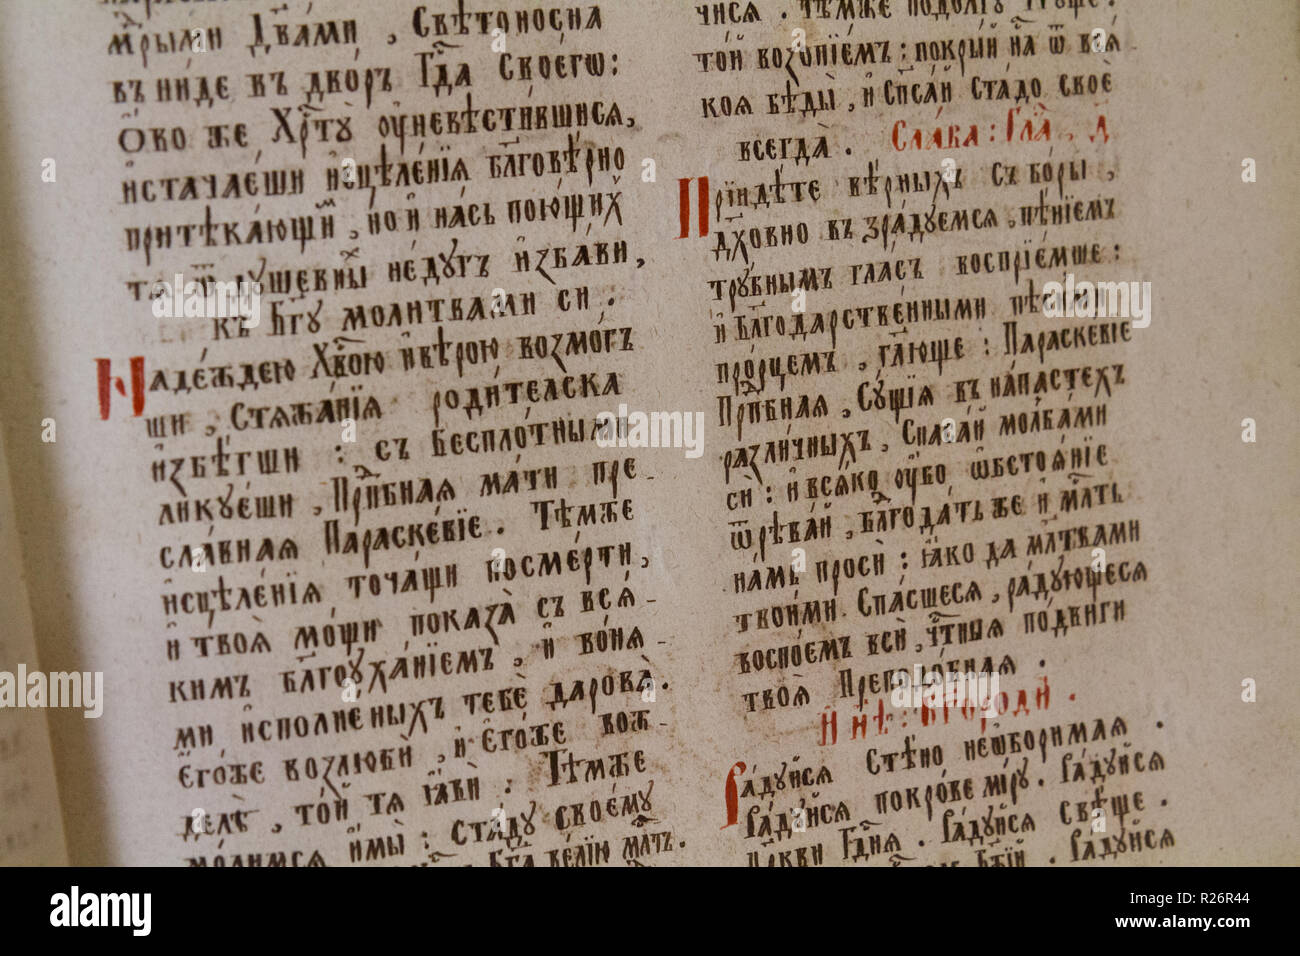 мѝрыми двами , свѣтоносна
въниде въ дворъ гд҇а своегѡ :
Ѻво же хрⷭ҇тꙋ оуневѣстившися,
истачаеши исцѣленїѧ бл҃говѣрно
притѣкающиⷨ , но и насъ поющих̾
тѧ ѿ дꙋшевныⷯ недꙋгъ избави ,
къ бг҃ꙋ молитвами си .
Надеждею хв҃ою и вѣрою возмогъ
ши , стѧжанїѧ родителска
избѣгши : съ бесплотными
ликꙋеши , прпⷣбнаѧ мати пре-
славнаѧ параскевїе . тѣмже
исцѣленїѧ точащи посмерти ,
и твоѧ мощи показа съ всѧ-
кимъ бл҃гоꙋханїемъ , и вонѧ-
ми исполненыхъ тебе дарова .
егоже возлюби , и егоже вож-
делѣ , той тѧ ꙗви : тѣмже
молимсѧ имы : стадꙋ своемꙋ
бг҃а велїю млⷭ҇ть .
чисѧ . тѣмже подолгꙋ
той возопїемъ : покрый на ѿ всѧ-
коѧ бѣды , и спс҃ай стадо свое
всегда . Слава : гла , д
Прїидѣте вѣрныхъ съборы ,
дх҃овно въ зрадꙋемсѧ , пѣнїемъ
трꙋбнымъ гласъ воспрїемше :
и бл҃годарственными пѣсими
прорцемъ , гл҃юще : Параскевїе
прпⷣбнаѧ , сꙋщїѧ въ напастехъ
различныхъ , спасай молбами
си : и всѧко оубо ѡбстоѧнїе
ѿрѣвай , бл҃годать же и млⷭ҇ть
намъ проси : ꙗко да млт҃вами
твоими спасшесѧ , радꙋющесѧ
воспоемъ вси , чⷭ҇тныѧ подвиги
твоѧ преподобнаѧ .
И нн҃ѣ : бг҃ороди .
Радꙋйсѧ стѣно неѡборимаѧ .
Радꙋйсѧ покрове мирꙋ . Радꙋйсѧ
црк҃ви гдⷭ҇нѧ . Радꙋйсѧ свѣще .
бж҃їй . Радꙋйсѧ
alamy
Image ID: R26R44
www.alamy.com